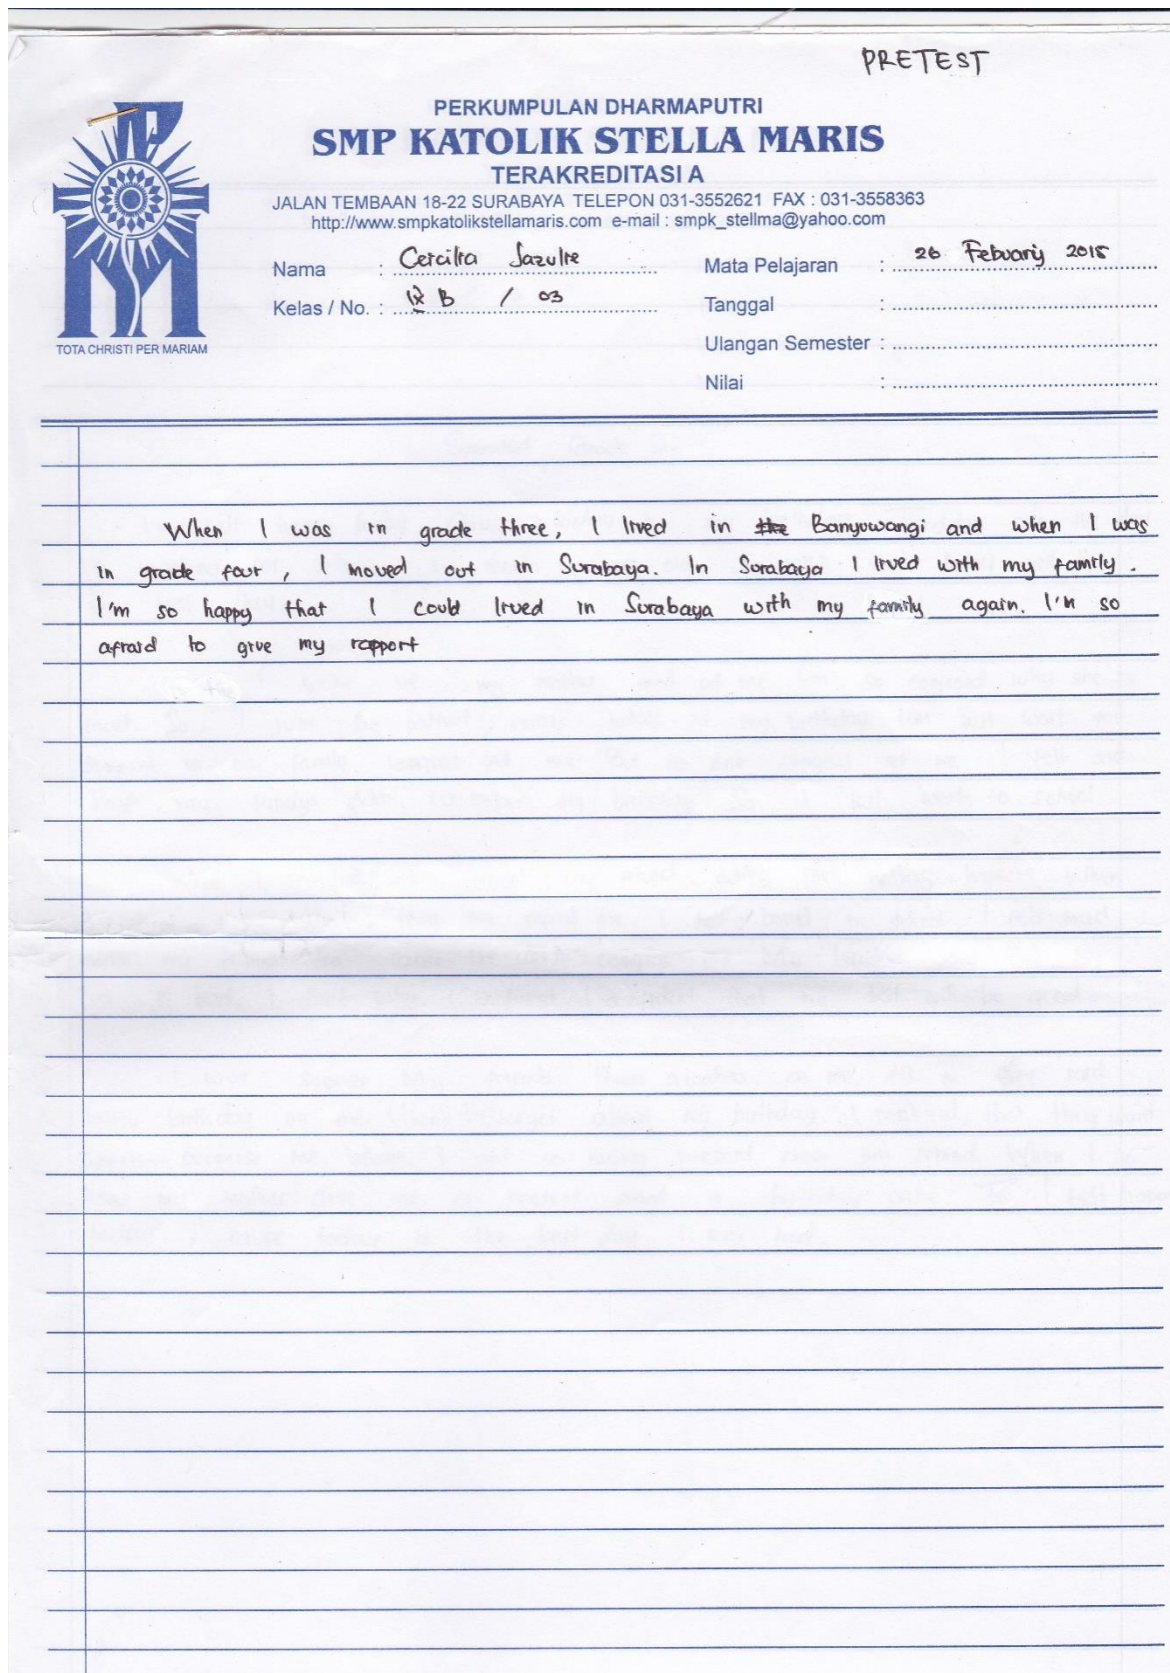 PRETEST
PERKUMPULAN DHARMAPUTRI
SMP KATOLIK STELLA MARIS
TERAKREDITASI A
JALAN TEMBAAN 18-22 SURABAYA TELEPON 031-3552621 FAX : 031-3558363
http://www.smpkatolikstellamaris.com e-mail : smpk_stellma@yahoo.com
TOTA CHRISTI PER MARIAM
Nama :
Kelas / No. : IX B / 03
Mata Pelajaran : 26 Febuariy 2015
Tanggal :
Ulangan Semester :
Nilai :
When I was in grade three, I lived in the Banyuwangi and when I was
in grade four, I moved out in Surabaya. In Surabaya I lived with my family.
I'm so happy that I could lived in Surabaya with my family again. I'm so
afraid to give my rapport